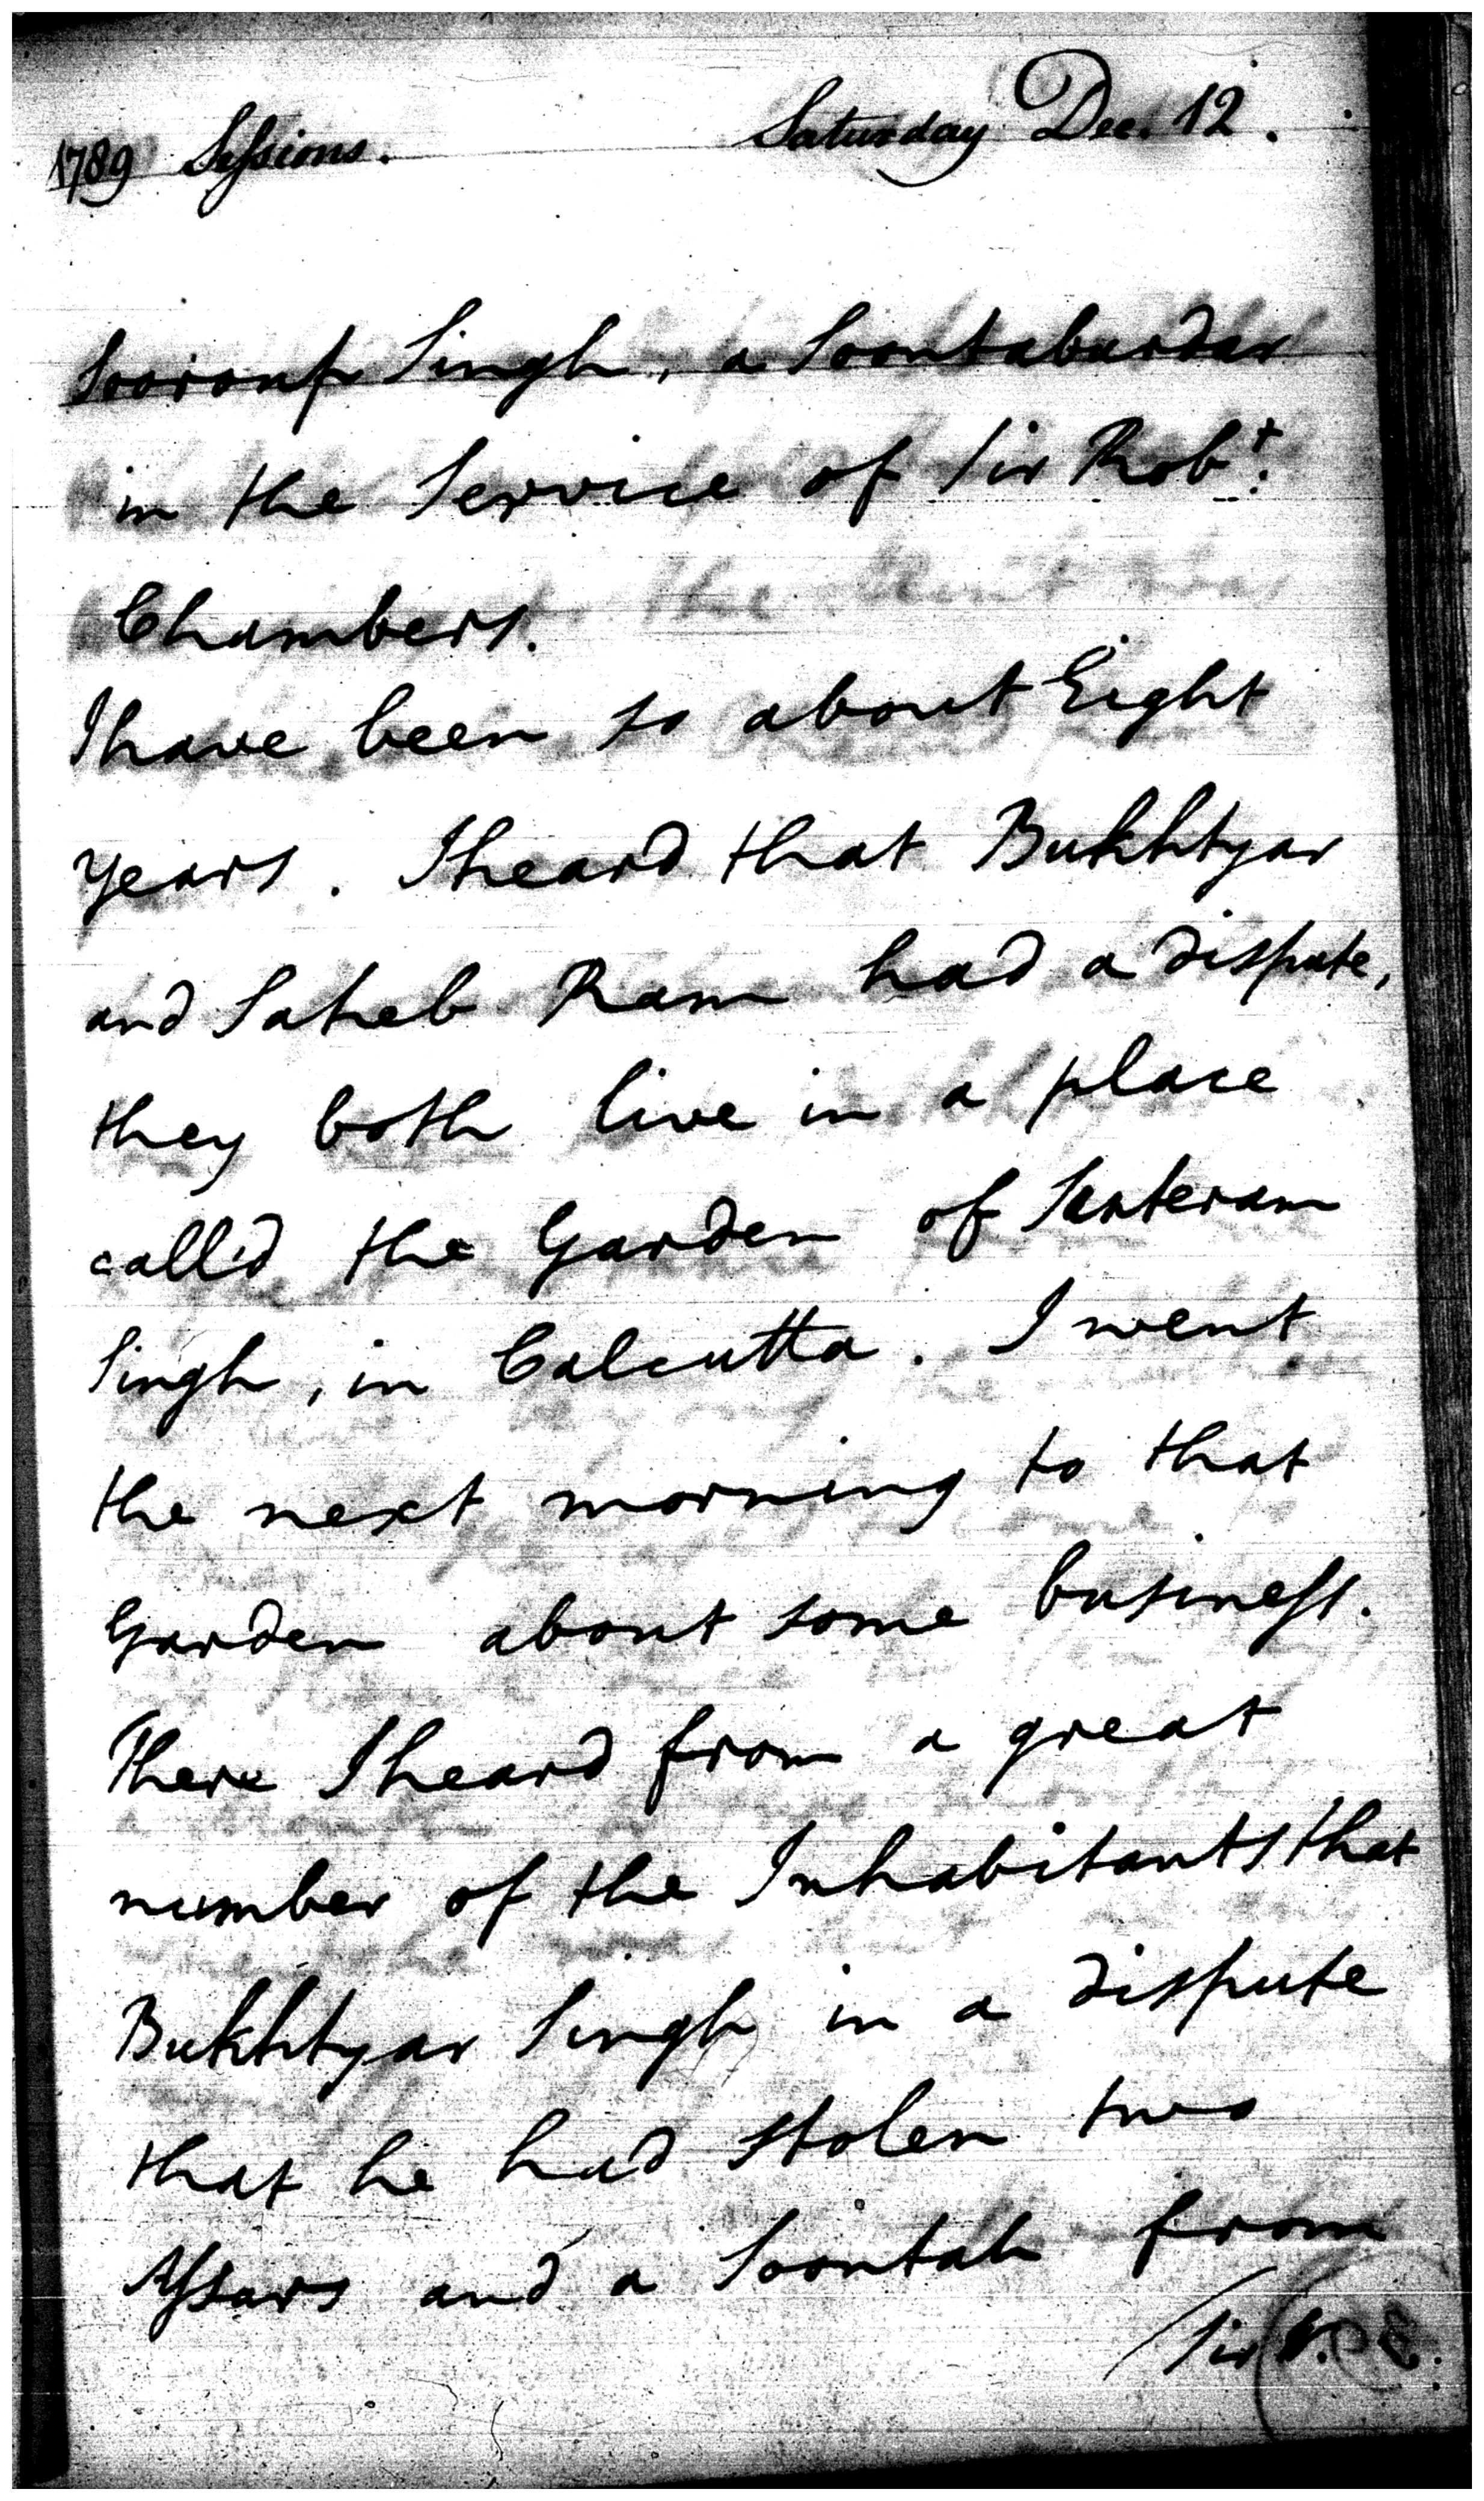 1789 Sessions. Saturday Dec. 12.
Sooroup Singh, a Soontaburdar
in the Service of Sir Robt.
Chambers.
I have been so about Eight
years. I heard that Bukhtyar
and Saheb Ram had a dispute,
they both live in a place
call'd the Garden of Santeram
Singh, in Calcutta. I went
the next morning to that
Garden about some business.
There I heard from a great
number of the Inhabitants that
Bukhtyar Singh in a dispute
that he had stolen two
Assars and a Soontah from
Sir R.